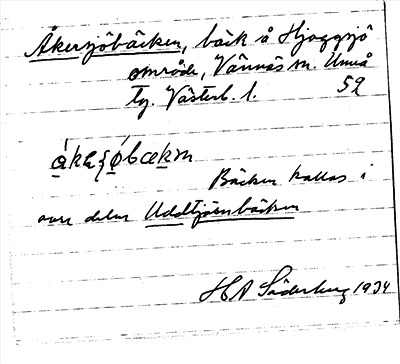 Åkersjöbäcken, bäck å Hjoggsjö
område, Vännäs sn. Umeå
tg. Västerb. l. 52
Bäcken kallas i
övre delen Uddtjärnbäcken
H A Söderberg 1934